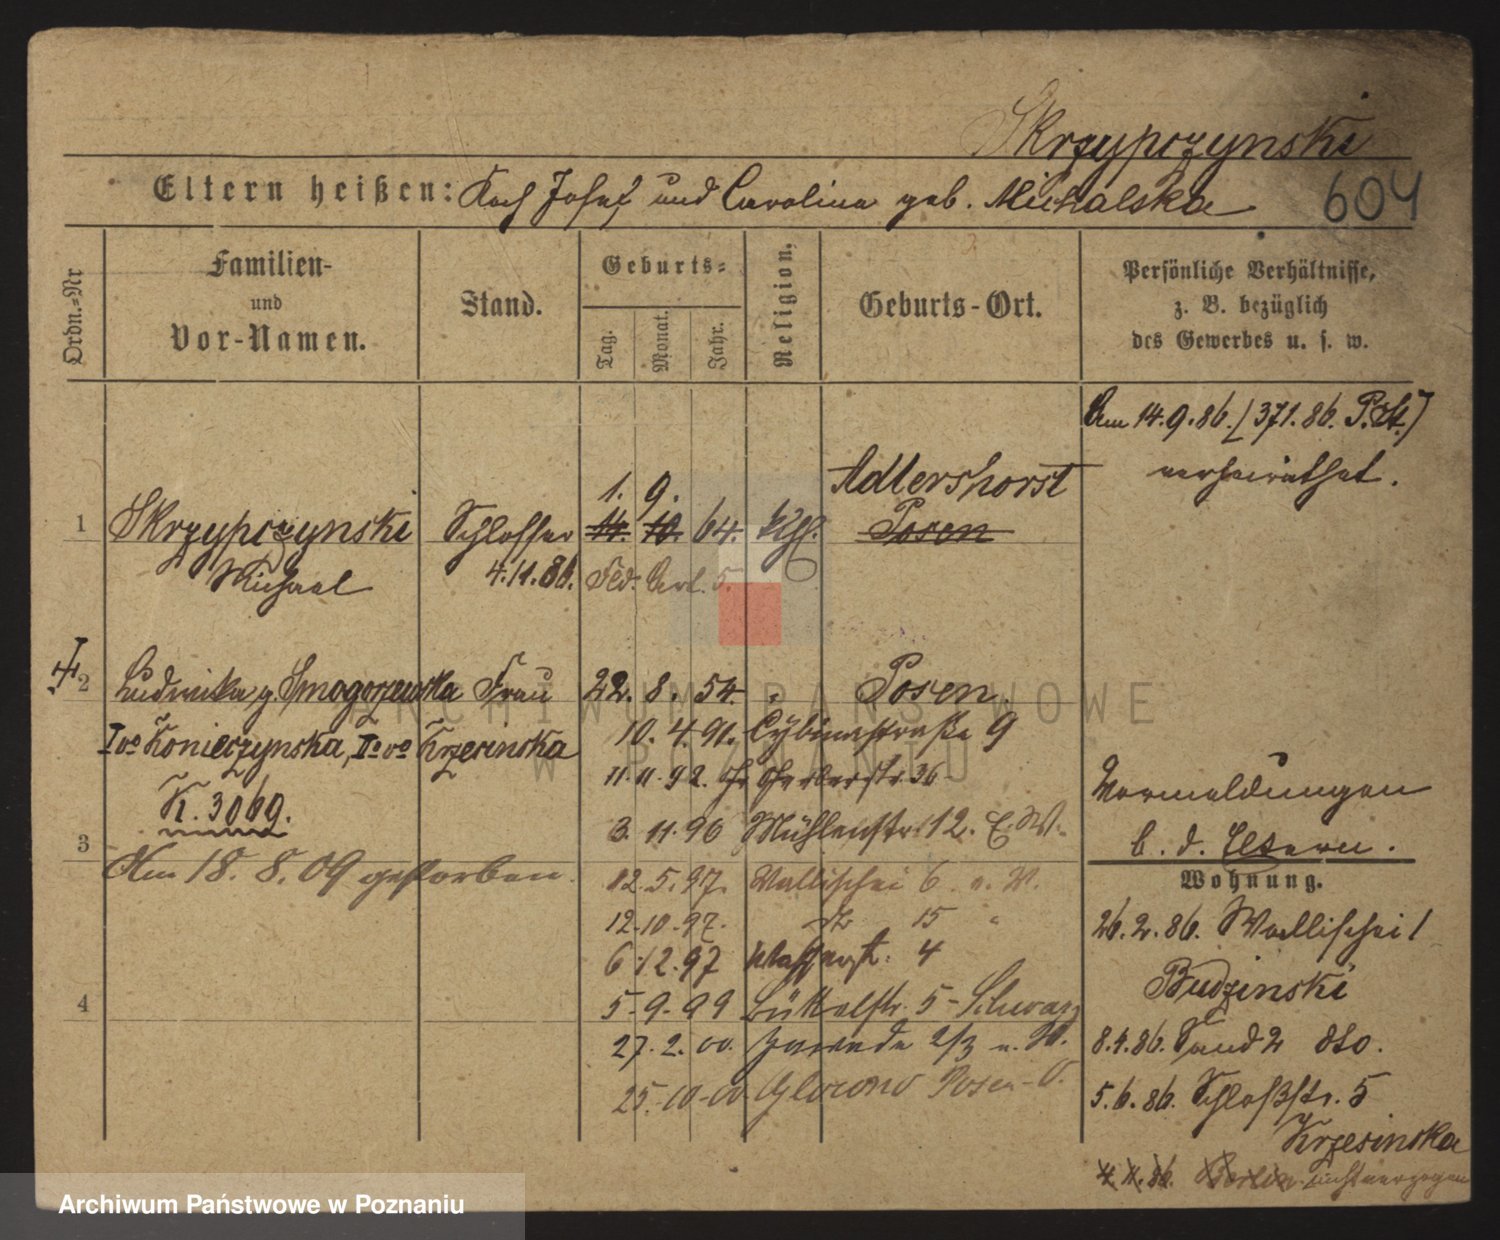 Skrzypczynski
Eltern heißen: Koch Josef und Carolina geb. Michalska
604
Ordn.=Nr
Familien-
und
Vor-Namen.
Stand.
Geburts=
Tag.
Monat.
Jahr.
Religion,
Geburts-Ort.
Persönliche Verhältnisse,
z. B. bezüglich
des Gewerbes u. s. w.
Am 14.9.86. (371.86. P. )
verheirathet.
1. 9. Adlershorst
1 Skrzypczynski Schlosser 11. 10. 64. Posen
Michael 4.11.86.
2 Ludwika g. Smogorzewska Frau 22. 8. 54. Posen.
Ivo Konieczynska, IIo vo Krzesinska
10.4.91. Cybinastraße 9
K. 3069.
11.11.92. Gerberstr. 36
3 3. 11. 96 Mühlenstr. 12. E. W.
Am 18. 8. 09 gestorben.
12. 5. 97. Wallischei 6
12.10.97. 15 "
6.12.97 Wasserstr. 4
4 5-9-99 Büttelstr. 5-Schwarz
27.2.00. Zawade 2/3
25.10.00 Glowno Posen-O.
Vermeldungen
b. d. Eltern.
Wohnung.
26.2.86. Wallischei 1
Budzinski
8.4.86. Sand 2 dto.
5.6.86. Schloßstr. 5
Krzesinska
4.11.86. Berlin. nicht verzogen
ARCHIWUM PAŃSTWOWE
W POZNANIU
Archiwum Państwowe w Poznaniu